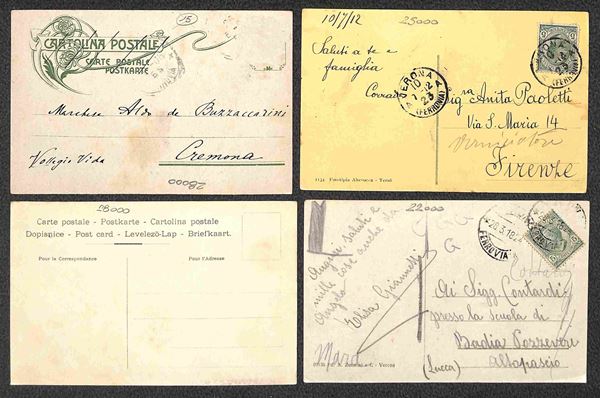 15
CARTOLINA POSTALE
CARTE POSTALE
POSTKARTE
Marchese Aldo de Buzzaccarini
Vollegio Vida
Cremona
28000
10/7/12
25000
Saluti a te e
famiglia
Corrado
VERONA
10
7-12
23
(FERROVIA)
Sig.ra Anita Paoletti
Via S. Maria 14
Firenze
1134 Fototipia Alterocca - Terni
18000
Carte postale - Postkarte - Cartolina postale
Dopisnice - Post card - Levelező-Lap - Briefkaart.
Pour la Correspondance
Pour l'Adresse
22000
Auguri saluti e
mille cose anche da
Angelo
Elsa
Mara
FERROVIA
G
Ai Sigg. Contardi
presso la scuola di
Badia Pozzeveri
Altopascio
(Lucca)
Verona